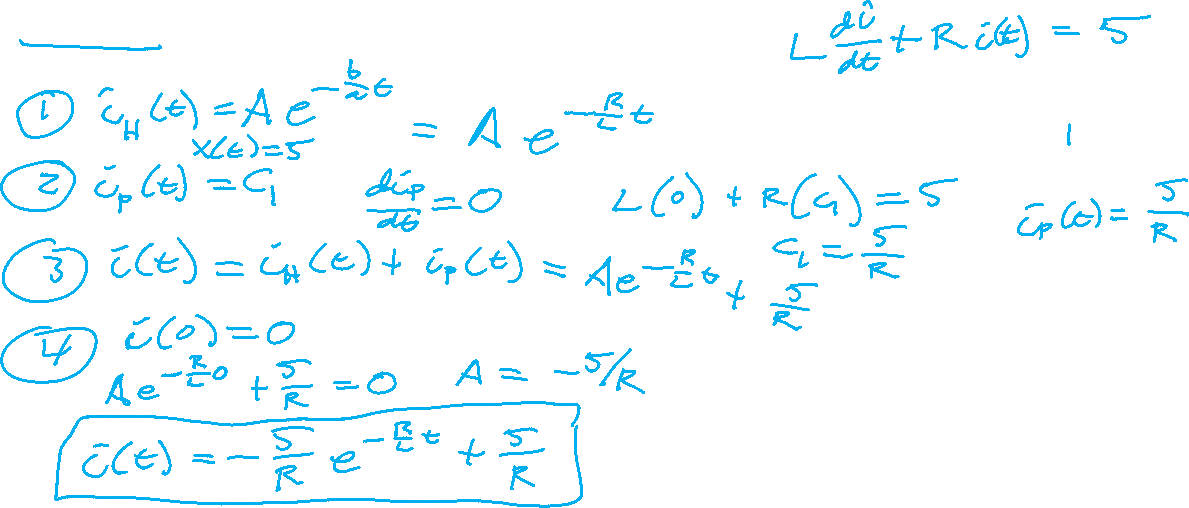 L di/dt + R i(t) = 5
① i_H(t) = A e^{-b/a t} = A e^{-R/L t}
x(t) = 5
② i_p(t) = C_1 di_p/dt = 0 L(0) + R(C_1) = 5 i_p(t) = 5/R
C_1 = 5/R
③ i(t) = i_H(t) + i_p(t) = A e^{-R/L t} + 5/R
④ i(0) = 0
A e^{-R/L 0} + 5/R = 0 A = -5/R
i(t) = -5/R e^{-R/L t} + 5/R